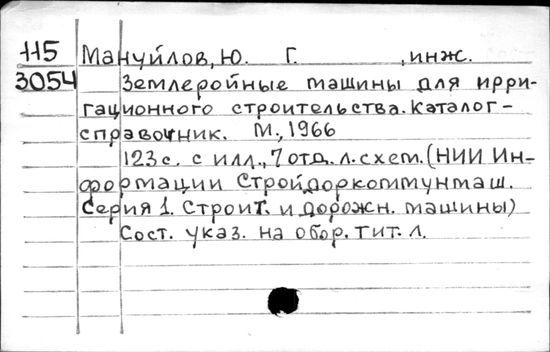 115 Мануйлов, Ю. Г. , инж.
3054 Землеройные машины для ирри-
гационного строительства. Каталог-
справочник. М., 1966
123 с. с илл., 7 отд. л. схем. (НИИ Ин-
формации Стройдоркоммунмаш.
Серия 1. Строит. и дорожн. машины)
Сост. указ. на обор. тит. л.